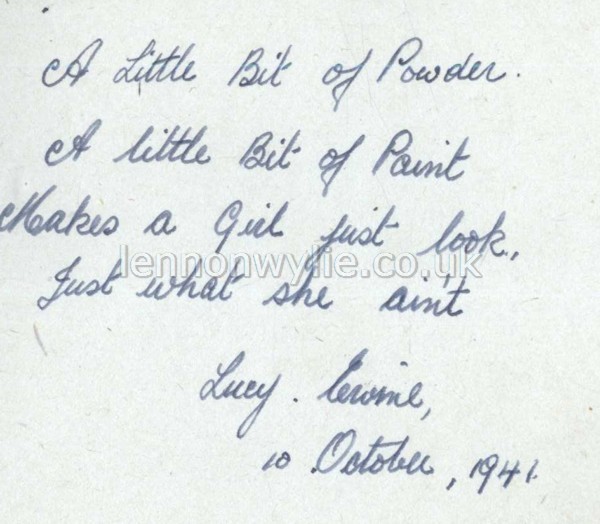 A Little Bit of Powder.
A little Bit of Paint
Makes a Girl just look,
lennonwylie.co.uk
Just what she ain't
Lucy. Erwine,
10 October, 1941.